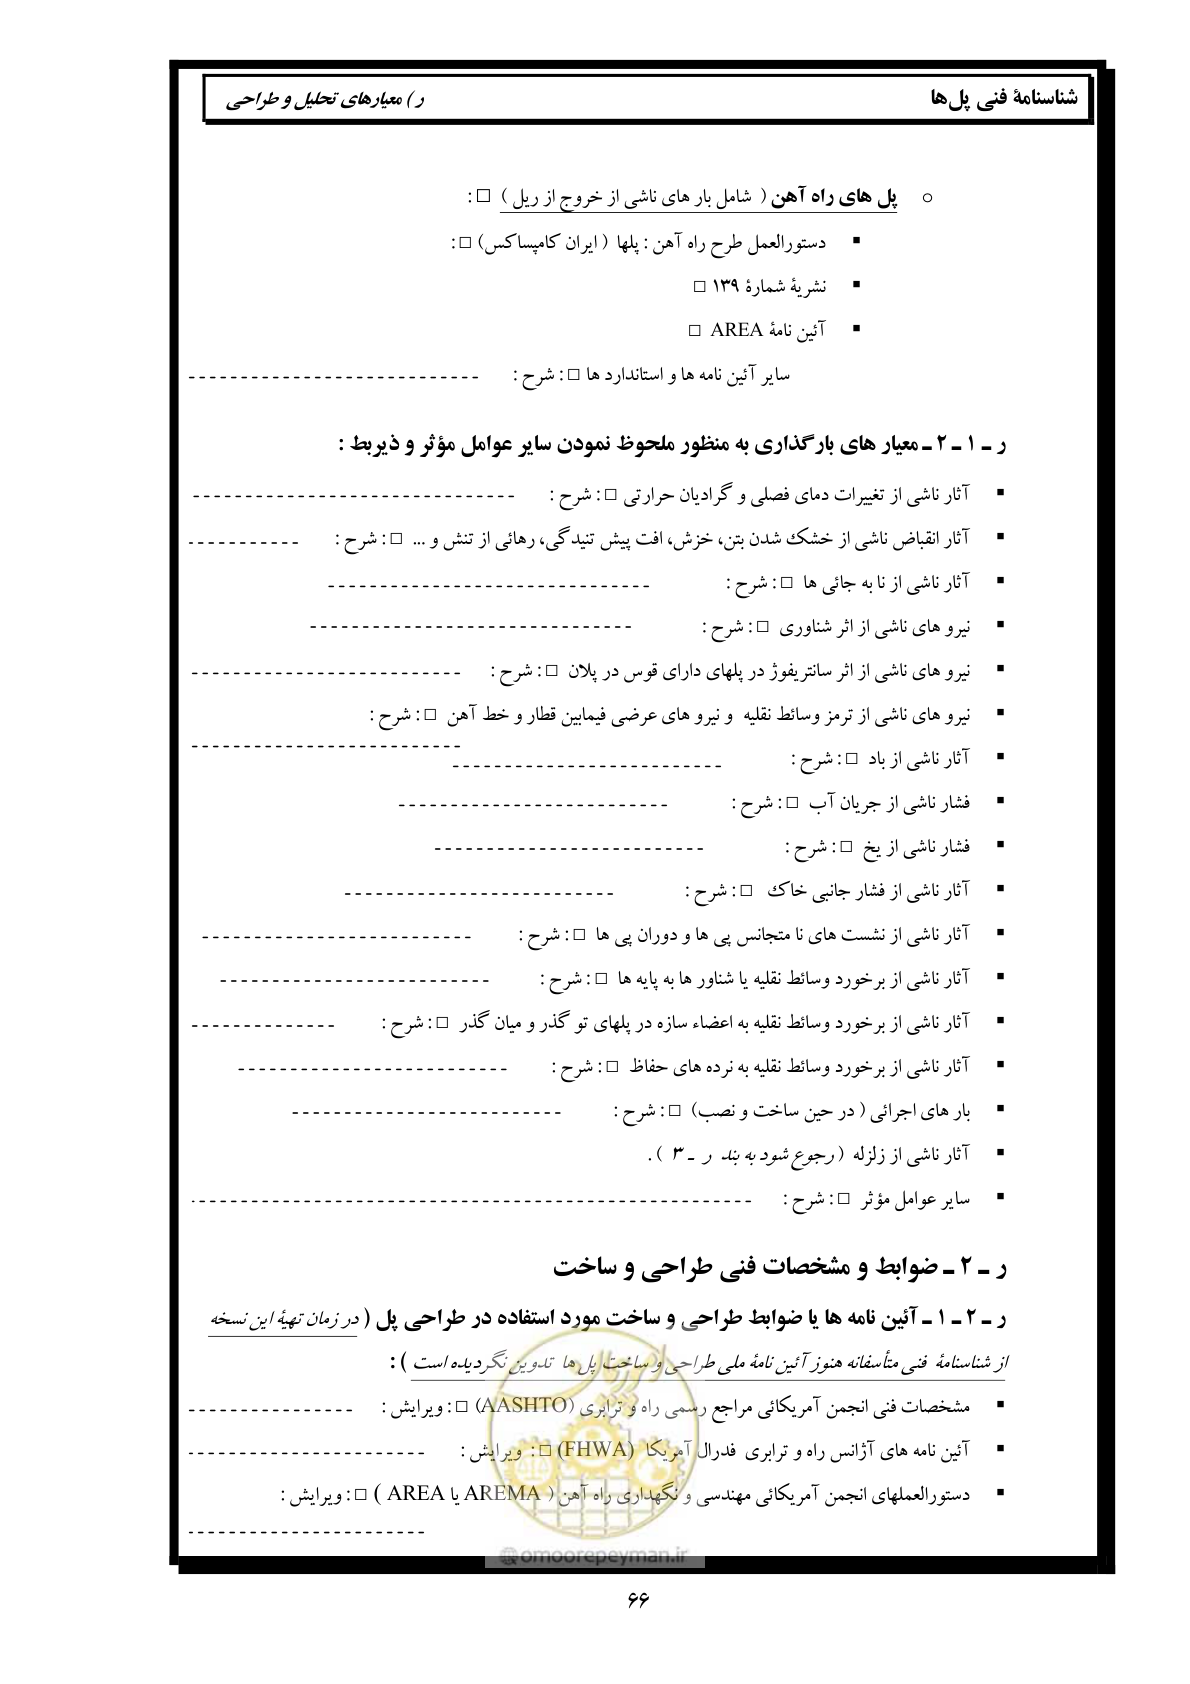 شناسنامهٔ فنی پل‌ها
ر ) معیارهای تحلیل و طراحی
o پل های راه آهن ( شامل بار های ناشی از خروج از ریل ) □ :
▪ دستورالعمل طرح راه آهن : پلها ( ایران کامپساکس) □ :
▪ نشریهٔ شمارهٔ ۱۳۹ □
▪ آئین نامهٔ AREA □
سایر آئین نامه ها و استاندارد ها □ : شرح : ----------------------------
ر ـ ۱ ـ ۲ ـ معیار های بارگذاری به منظور ملحوظ نمودن سایر عوامل مؤثر و ذیربط :
▪ آثار ناشی از تغییرات دمای فصلی و گرادیان حرارتی □ : شرح : -------------------------------
▪ آثار انقباض ناشی از خشک شدن بتن، خزش، افت پیش تنیدگی، رهائی از تنش و ... □ : شرح : -----------
▪ آثار ناشی از نا به جائی ها □ : شرح : -------------------------------
▪ نیرو های ناشی از اثر شناوری □ : شرح : -------------------------------
▪ نیرو های ناشی از اثر سانتریفوژ در پلهای دارای قوس در پلان □ : شرح : --------------------------
▪ نیرو های ناشی از ترمز وسائط نقلیه و نیرو های عرضی فیمابین قطار و خط آهن □ : شرح :
--------------------------
▪ آثار ناشی از باد □ : شرح : --------------------------
▪ فشار ناشی از جریان آب □ : شرح : --------------------------
▪ فشار ناشی از یخ □ : شرح : --------------------------
▪ آثار ناشی از فشار جانبی خاک □ : شرح : --------------------------
▪ آثار ناشی از نشست های نا متجانس پی ها و دوران پی ها □ : شرح : --------------------------
▪ آثار ناشی از برخورد وسائط نقلیه یا شناور ها به پایه ها □ : شرح : --------------------------
▪ آثار ناشی از برخورد وسائط نقلیه به اعضاء سازه در پلهای تو گذر و میان گذر □ : شرح : --------------
▪ آثار ناشی از برخورد وسائط نقلیه به نرده های حفاظ □ : شرح : --------------------------
▪ بار های اجرائی ( در حین ساخت و نصب) □ : شرح : --------------------------
▪ آثار ناشی از زلزله ( رجوع شود به بند ر ـ ۳ ) .
▪ سایر عوامل مؤثر □ : شرح : ------------------------------------------------------
ر ـ ۲ ـ ضوابط و مشخصات فنی طراحی و ساخت
ر ـ ۲ ـ ۱ ـ آئین نامه ها یا ضوابط طراحی و ساخت مورد استفاده در طراحی پل ( در زمان تهیهٔ این نسخه
از شناسنامهٔ فنی متأسفانه هنوز آئین نامهٔ ملی طراحی و ساخت پل ها تدوین نگردیده است ) :
▪ مشخصات فنی انجمن آمریکائی مراجع رسمی راه و ترابری (AASHTO) □ : ویرایش : ----------------
▪ آئین نامه های آژانس راه و ترابری فدرال آمریکا (FHWA) □ : ویرایش : -----------------------
▪ دستورالعملهای انجمن آمریکائی مهندسی و نگهداری راه آهن ( AREMA یا AREA ) □ : ویرایش :
-----------------------
امور پیمان
@omoorepeyman.ir
۶۶